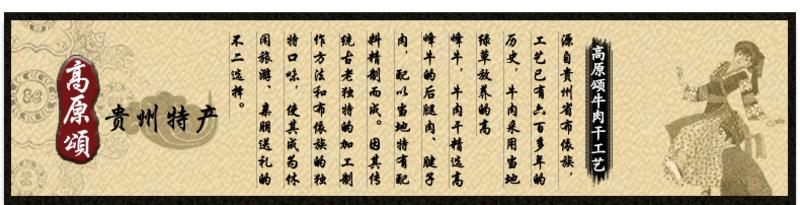 高原颂牛肉干工艺
源自贵州省布依族，
工艺已有六百多年的
历史 牛肉采用当地
绿草放养的高
峰牛，牛肉干精选高
峰牛的后腿肉、腱子
肉，配以当地特有配
料精制而成。因其传
统古老独特的加工制
作方法和布依族的独
特口味，使其成为休
闲旅游、亲朋送礼的
不二选择。
贵州特产
高原颂